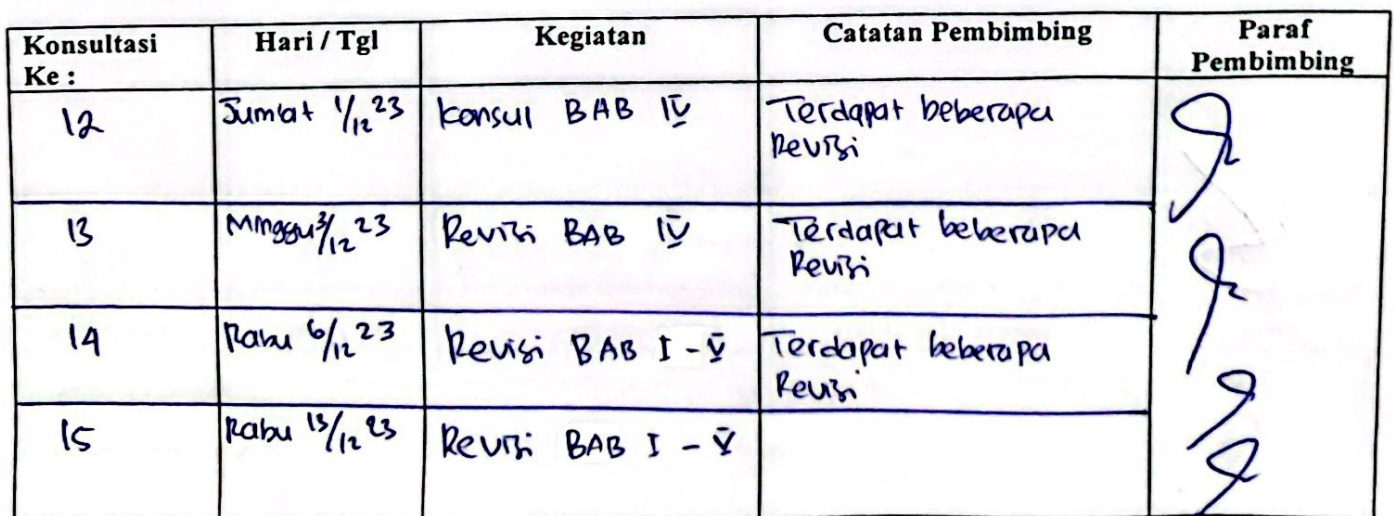 Konsultasi Ke : Hari / Tgl Kegiatan Catatan Pembimbing Paraf Pembimbing
12 Jumat 1/12 23 Konsul BAB IV Terdapat beberapa
Revisi
13 Minggu 3/12 23 Revisi BAB IV Terdapat beberapa
Revisi
14 Rabu 6/12 23 Revisi BAB I - V Terdapat beberapa
Revisi
15 Rabu 13/12 23 Revisi BAB I - V